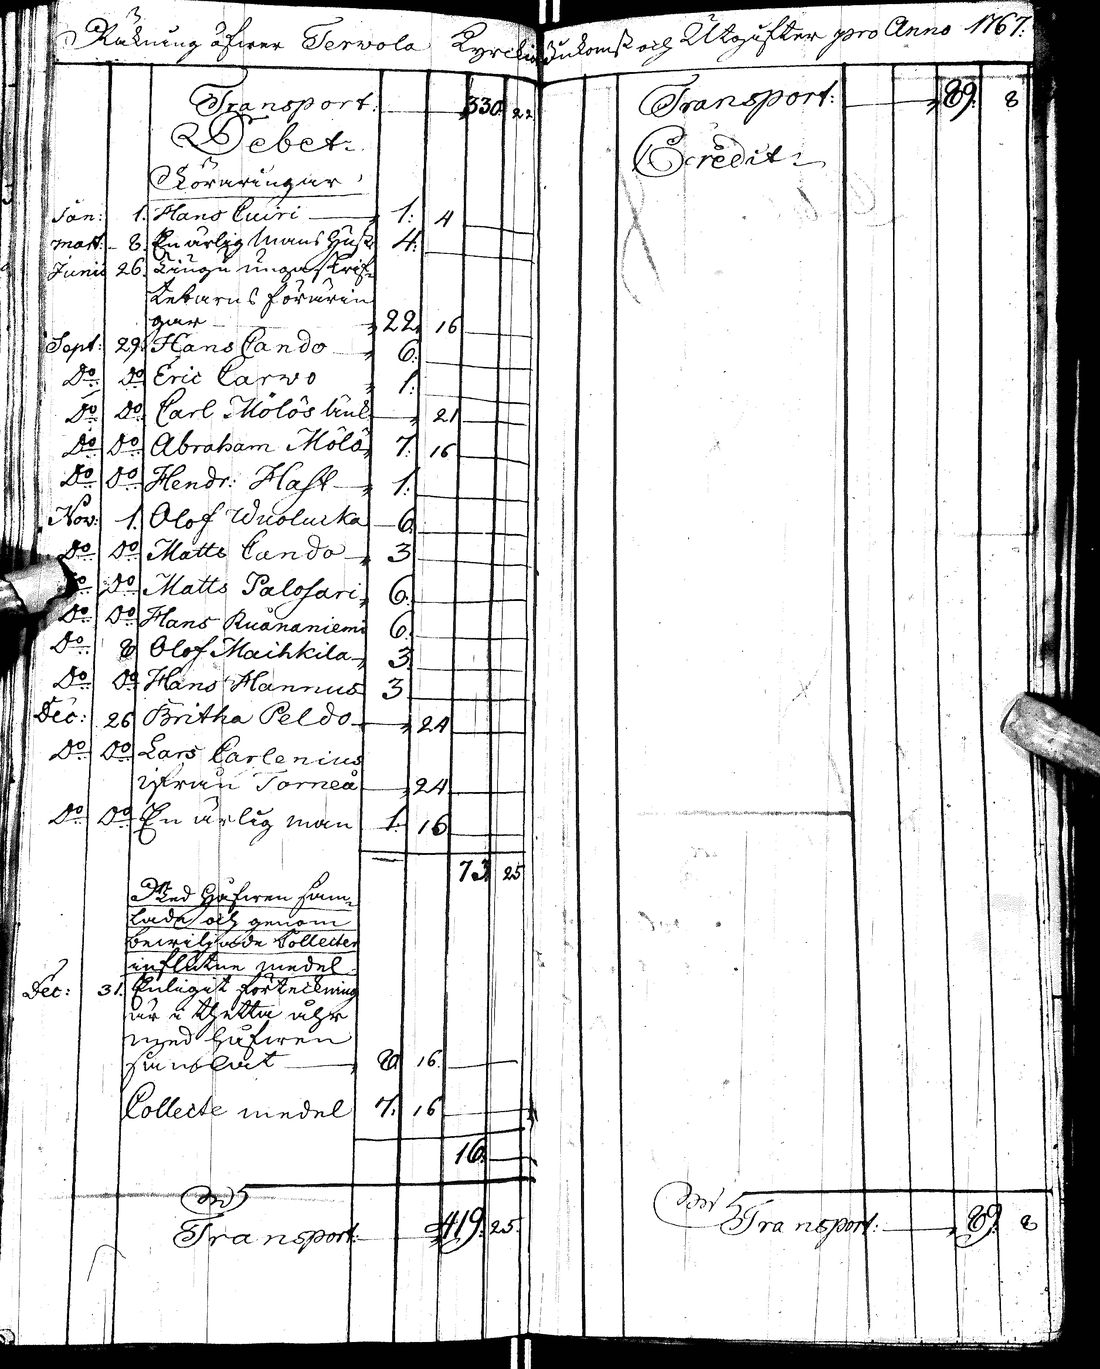 Räkning öfwer Terwola Kyrckio Inkomst och Utgifter pro Anno 1767.
Transport: 330. 22.
Debet:
Föräringar
Jan: 1. Hans Cuiri 1: 4
Mart: 8. En ärlig Mans Hust 4:
Junii 26. Tiugu unga Skrif-
tebarns förärin
gar 22. 16
Sept: 29. Hans Cando 6.
Do Do Eric Carwo 1:
Do Do Carl Mölös änk 21
Do Do Abraham Mölö 7. 16
Do Do Hendr: Hast 1:
Nov: 1. Olof Wuolucka 6.
Do Do Matts Cando 3
Do Do Matts Palosari 6.
Do Do Hans Ruånaniemi 6.
Do 8 Olof Maihkila 3.
Do Do Hans Hannus 3
Dec: 26 Britha Peldo 24
Do Do Lars Carlenius
ifrån Torneå 24
Do Do En ärlig man 1. 16
73 25
Med Håfwen sam-
lade och genom
bewilgade Collecter
influtne medel.
Dec: 31. Enligit förteckning
är i thetta åhr
med håfwen
samblat 8. 16.
Collecte medel 7. 16
16.
Transport: 419. 25.
Transport: 89. 8
Credit:
Transport: 89. 8